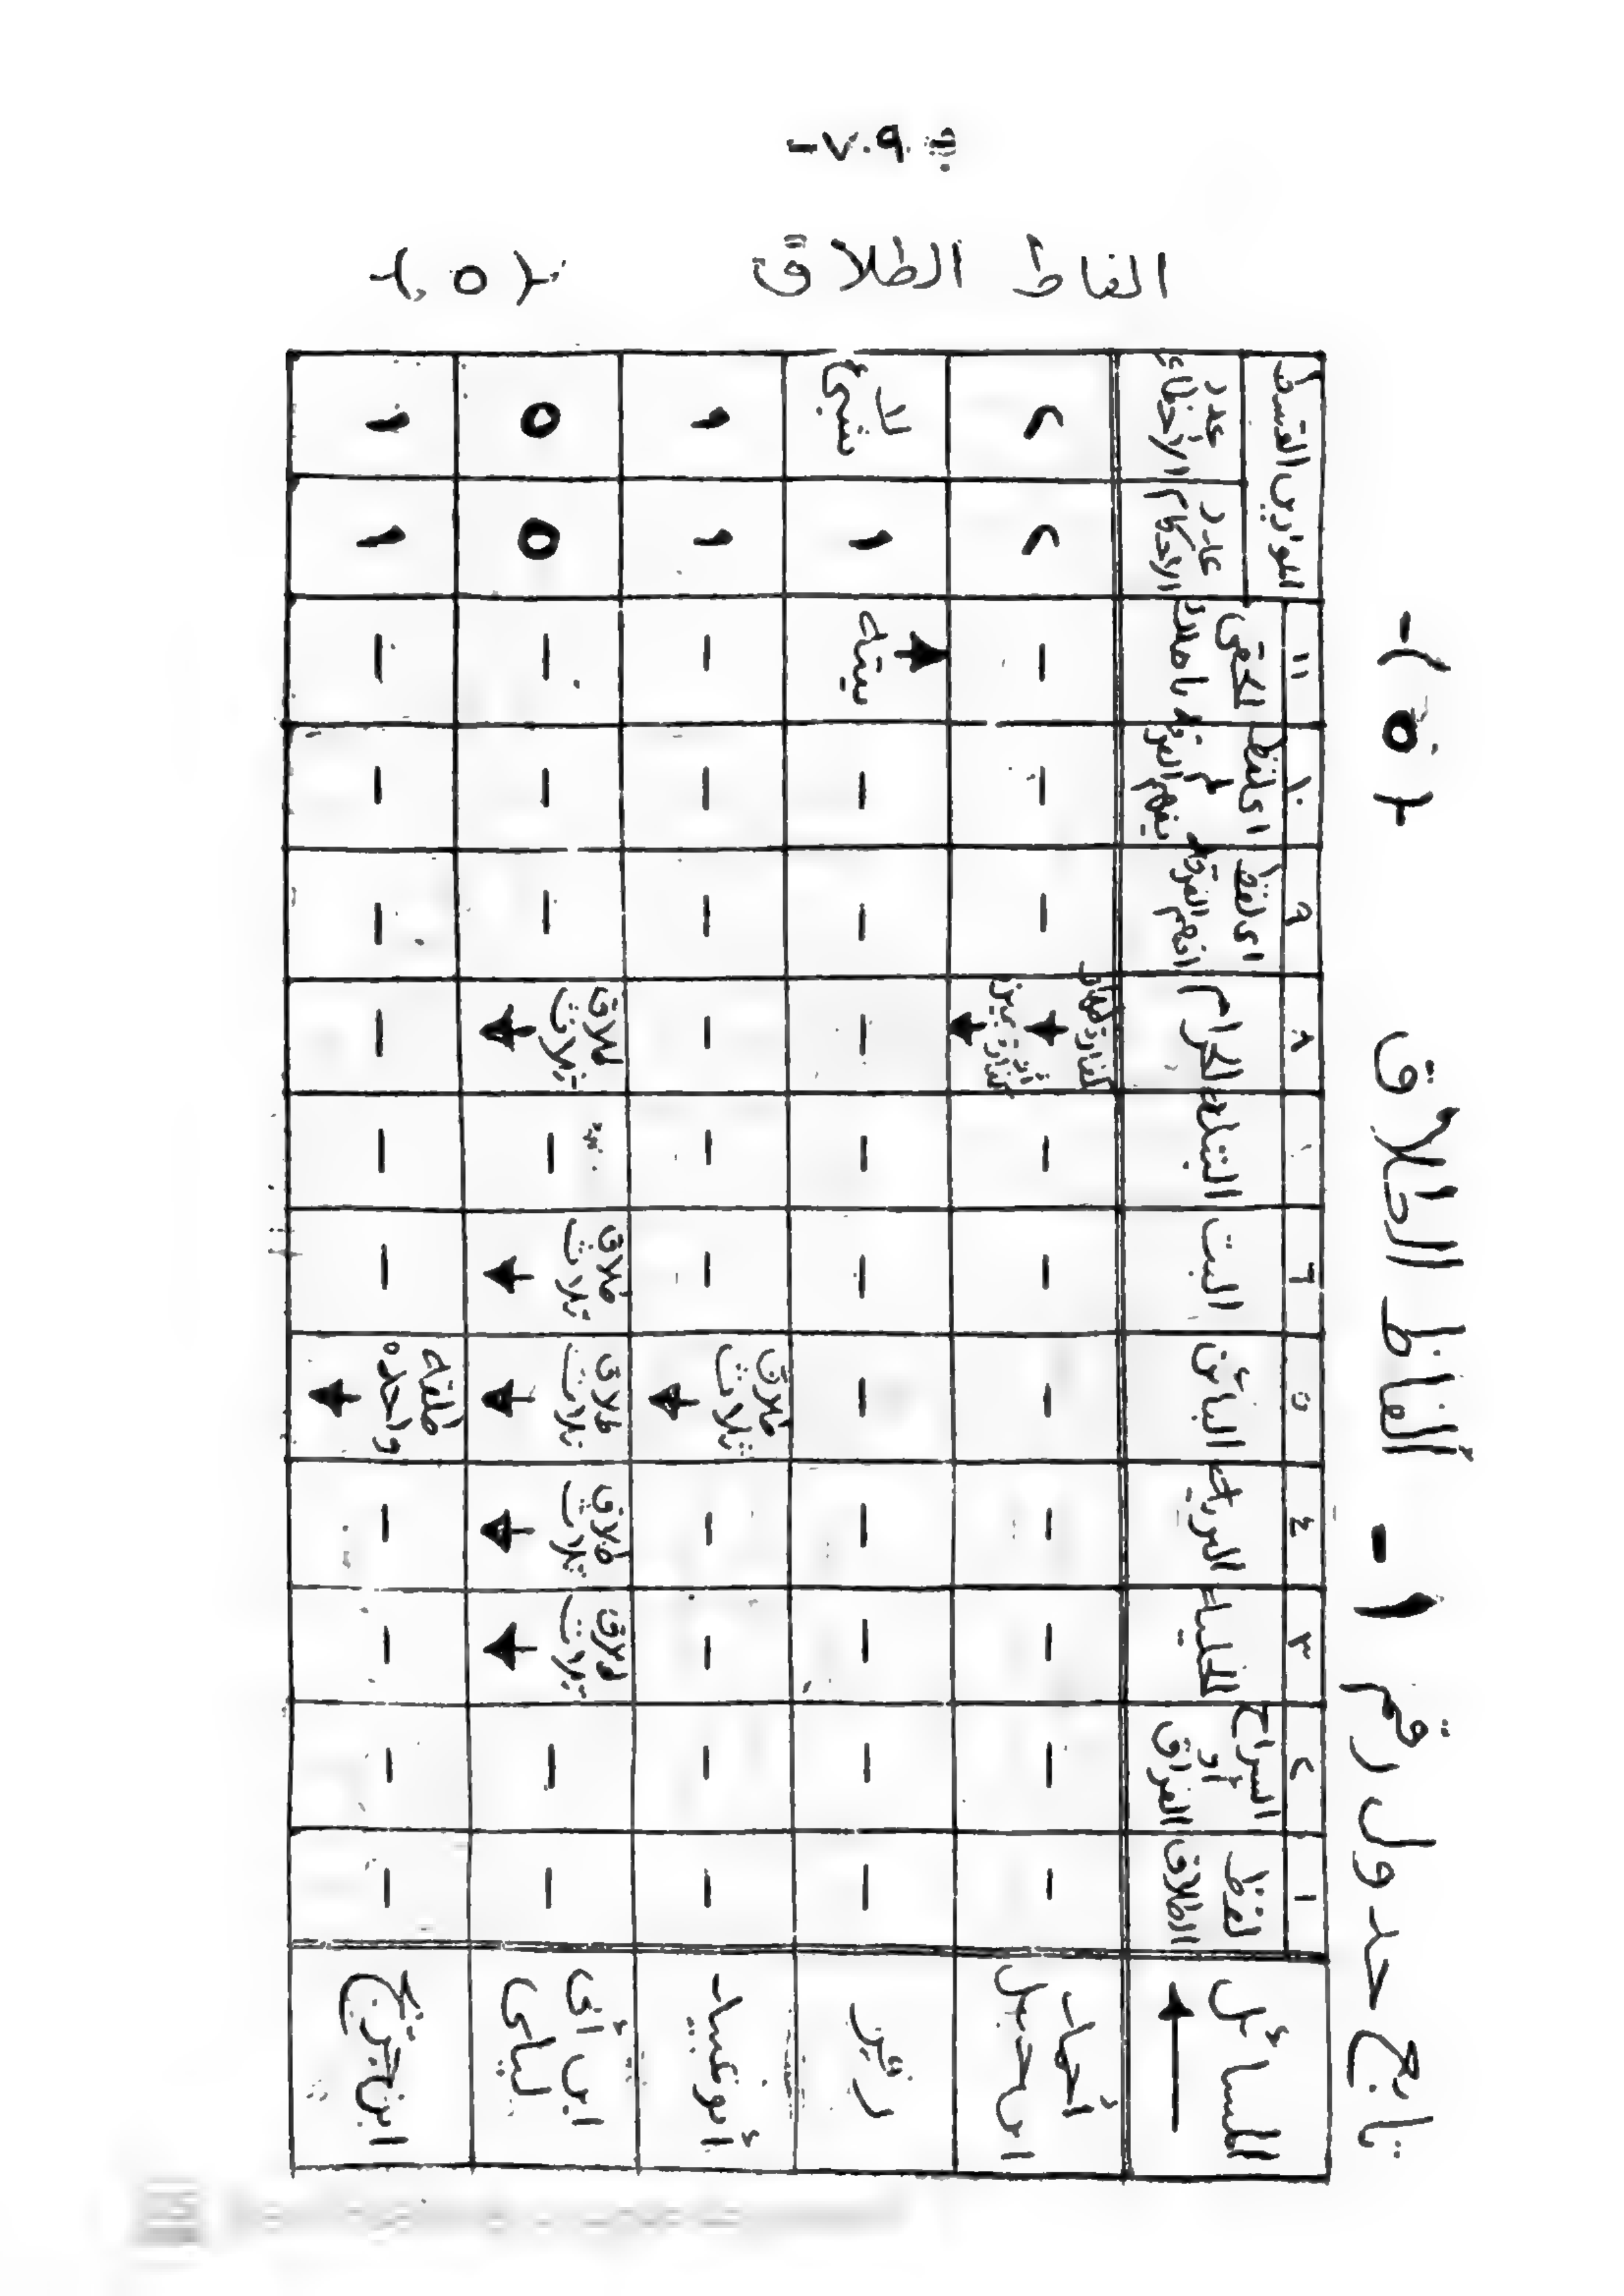 -٧٠٩-
الفاظ الطلاق { ٥ }
تابع جدول رقم ١ - ألفاظ الطلاق { ٥ } -
المسائل
١ لفظ الطلاق
٢ السراح أو الفراق
٣ الخلية
٤ البرية
٥ البائن
٦ البت
البتلة
٨ الحرام
٩ اى لفظ افهم الفرقة
١٠ اى لفظ لم يفهم الفرقة
١١ الحقى باهلك
عدد الاحكام
عدد الاخطاء
أحمد ابن حنبل - - - - - - - كفارة ظهار أو كفارة يمين - - - ٢ ٢
زفر - - - - - - - - - - بنيته ١ لا شىء
أبو عبيد - - - - طلاق ثلاث - - - - - - ١ ١
ابن أبى ليلى - - طلاق ثلاث طلاق ثلاث طلاق ثلاث طلاق ثلاث - طلاق ثلاث - - - ٥ ٥
ابن جريج - - - - طلقه واحده - - - - - - ١ ١